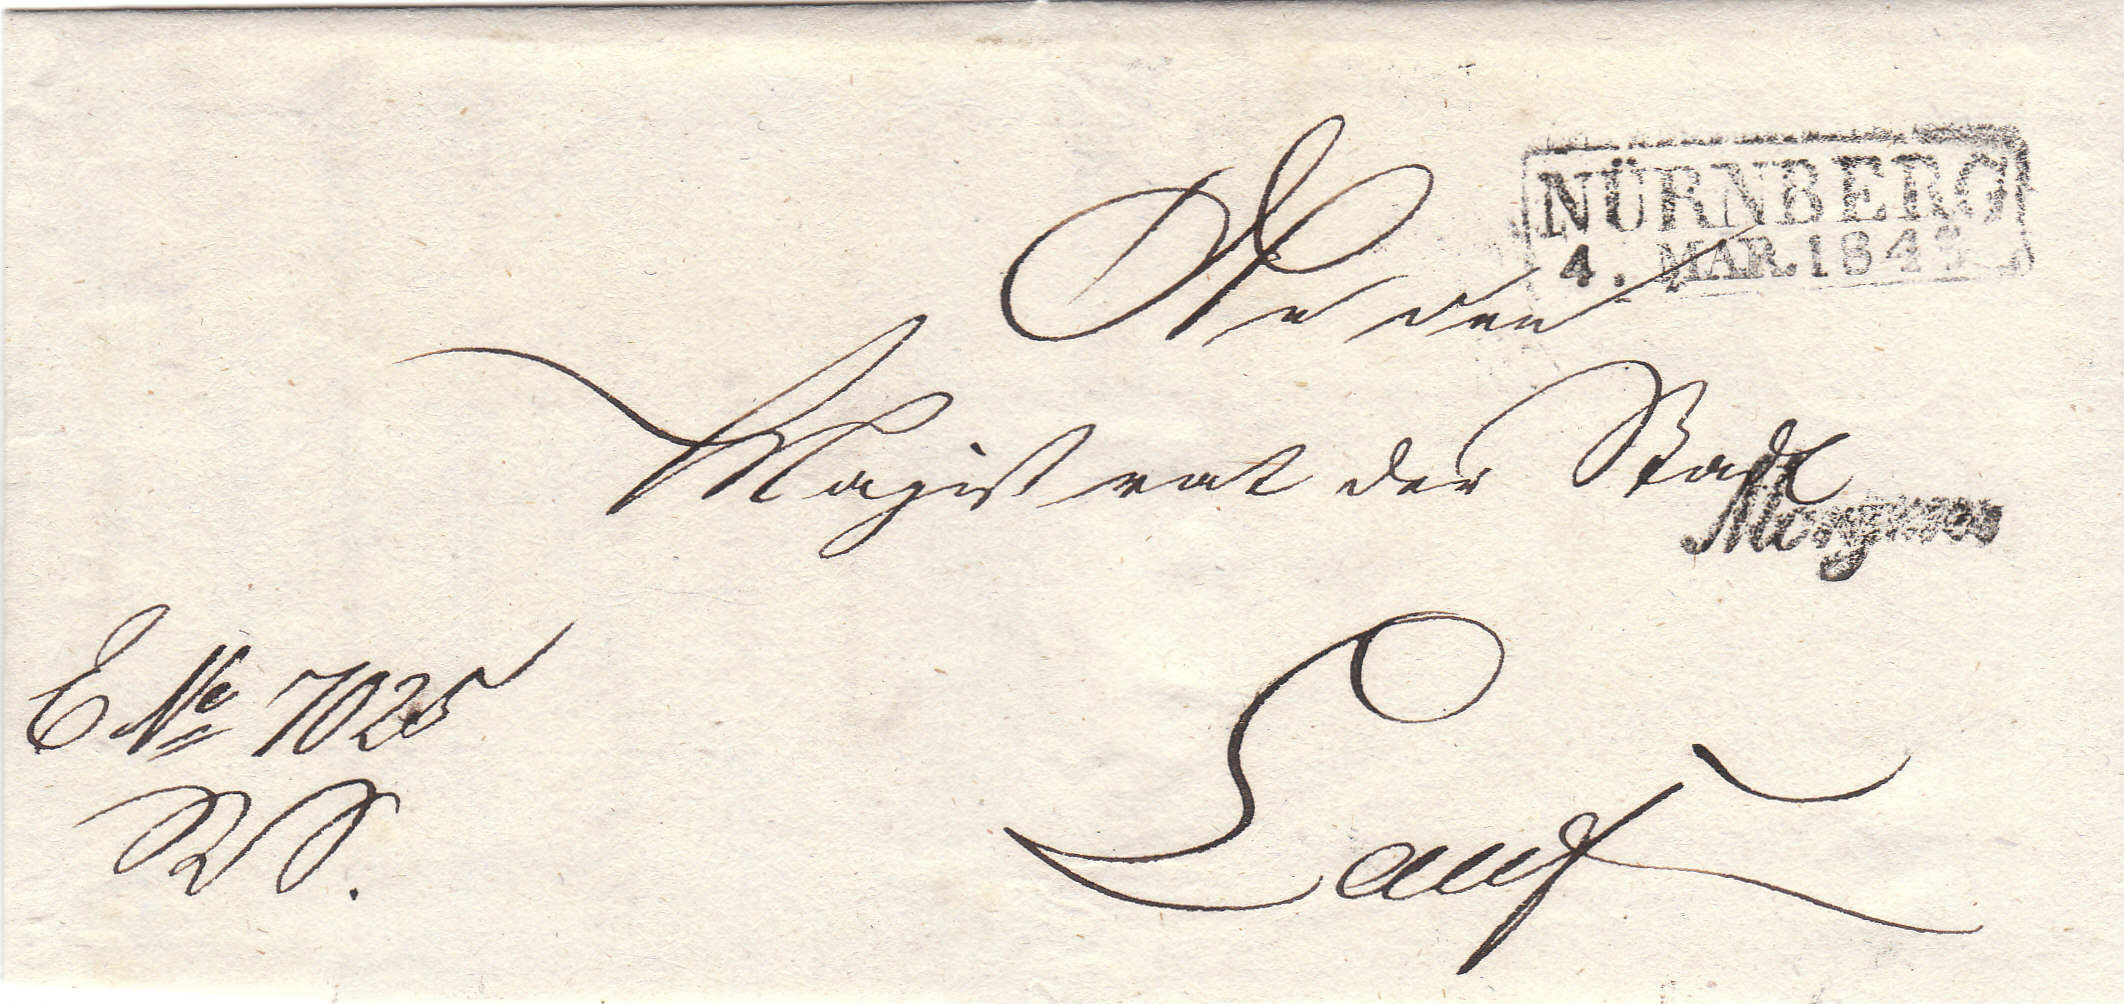 NÜRNBERG
4. MAR. 184
An den
Magistrat der Stadt
Morgens
Lauf
E № 7025
R S.